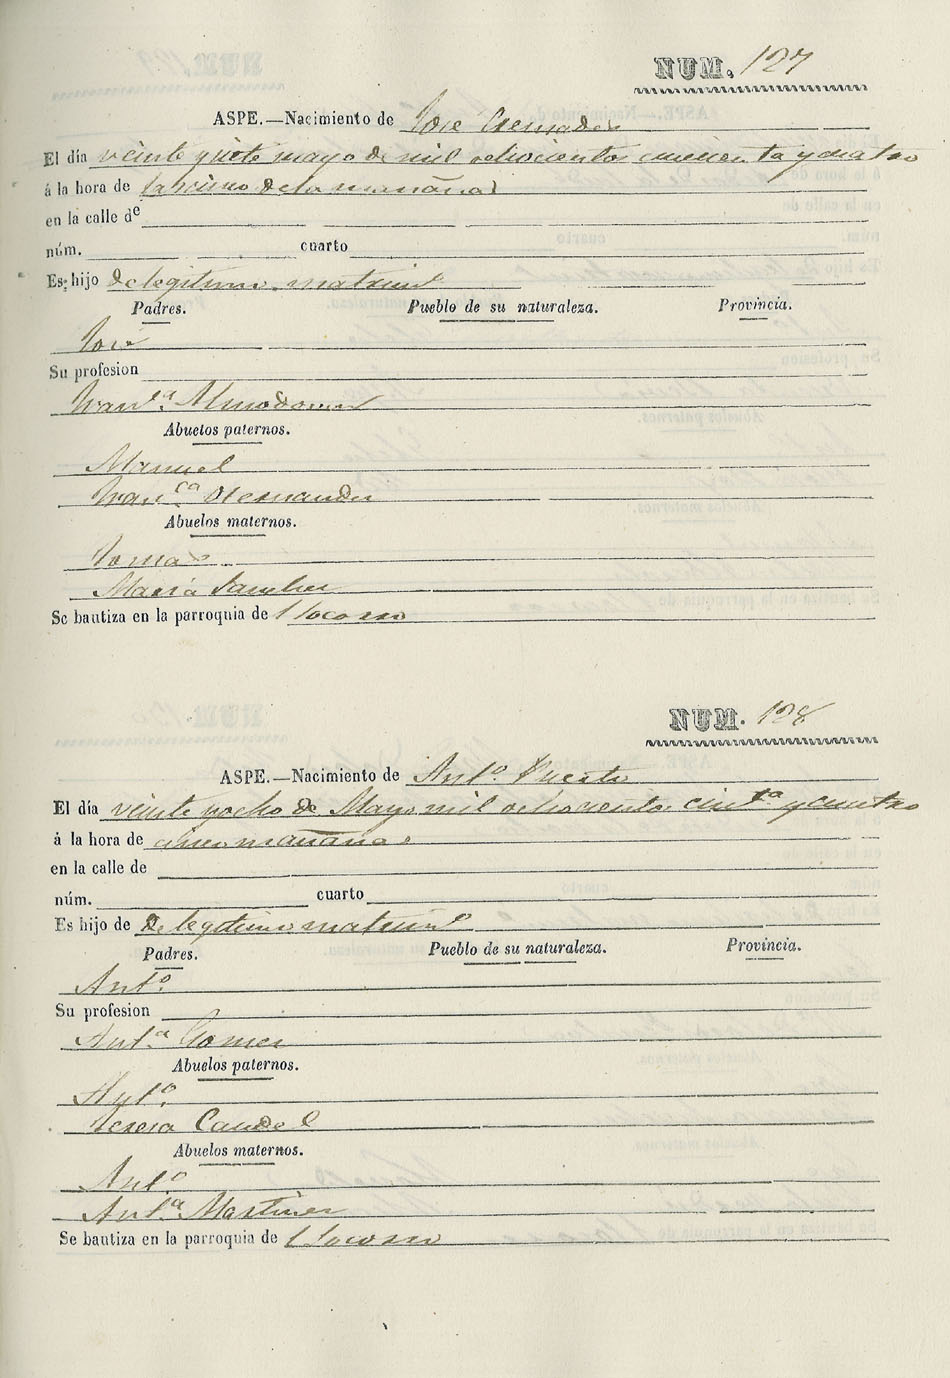 NUM. 127
ASPE.—Nacimiento de Jose Cremades
El día veinte y siete mayo de mil ochocientos cincuenta y cuatro
á la hora de las cinco de la mañana
en la calle de
núm. cuarto
Es hijo de legitimo matrim.º
Padres. Pueblo de su naturaleza. Provincia.
José
Su profesion
Fran.ca Almodovar
Abuelos paternos.
Manuel
Fran.ca Hernandez
Abuelos maternos.
Tomas
Maria Sanchez
Se bautiza en la parroquia de l Socorro
NUM. 128
ASPE.—Nacimiento de Ant.º Puerto
El día veinte y ocho de Mayo mil ochocientos cin.ta y cuatro
á la hora de cinco mañana
en la calle de
núm. cuarto
Es hijo de De legitimo matrim.º
Padres. Pueblo de su naturaleza. Provincia.
Ant.º
Su profesion
Ant.ª Gomez
Abuelos paternos.
Ant.º
Teresa Caudel
Abuelos maternos.
Ant.º
Ant.ª Martinez
Se bautiza en la parroquia de l Socorro